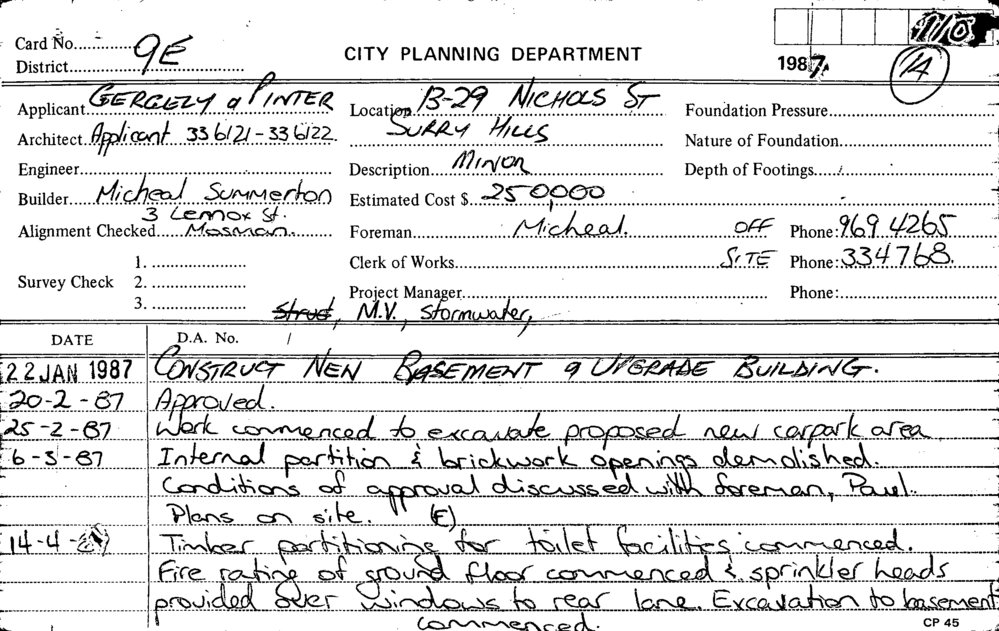 Card No.
District 9E
CITY PLANNING DEPARTMENT
1987
14
Applicant GERGELY & PINTER
Location 13-29 NICHOLS ST
Foundation Pressure
Architect Applicant 336121-336122
SURRY HILLS
Nature of Foundation
Engineer
Description MINOR
Depth of Footings
Builder Micheal Summerton
Estimated Cost $ 250,000
3 Lennox St.
Alignment Checked Mosman.
Foreman Micheal. OFF Phone: 969 4265
Clerk of Works SITE Phone: 334768.
Survey Check 1.
2.
3.
Project Manager Phone:
Struct, M.V., Stormwater,
DATE D.A. No.
22 JAN 1987 CONSTRUCT NEW BASEMENT & UPGRADE BUILDING.
20-2-87 Approved.
25-2-87 Work commenced to excavate proposed new carpark area
6-3-87 Internal partition & brickwork openings demolished.
Conditions of approval discussed with foreman, Paul.
Plans on site. (F)
14-4- Timber partitioning for toilet facilities commenced.
Fire rating of ground floor commenced & sprinkler heads
provided over windows to rear lane. Excavation to basement
commenced.
CP 45